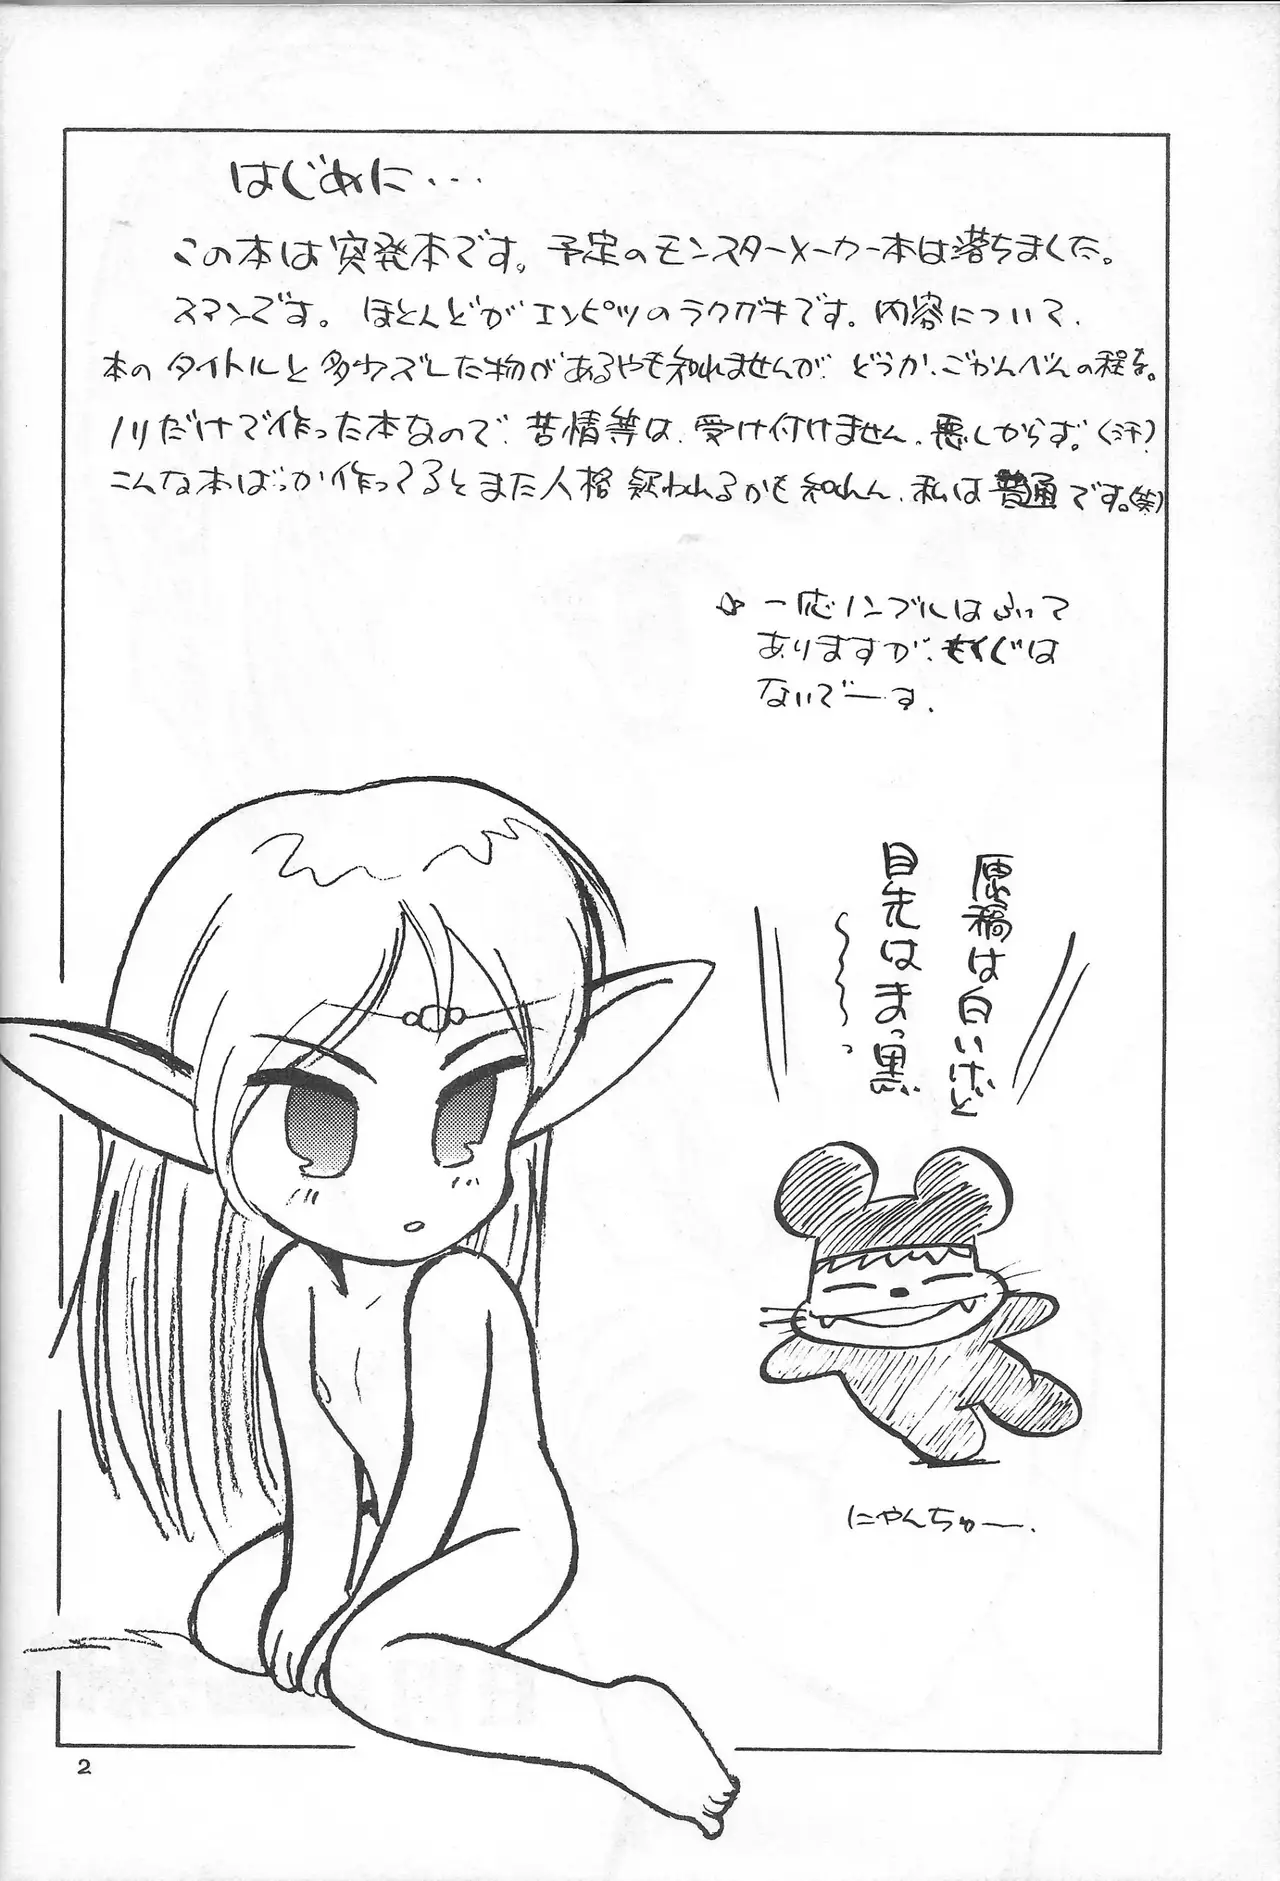 はじめに・・・
この本は突発本です。予定のモンスターメーカー本は落ちました。
スマンです。ほとんどがエンピツのラクガキです。内容について、
本のタイトルと多少ズレした物があるやも知れませんが、どうか、ごかんべんの程を。
ノリだけで作った本なので、苦情等は、受け付けません、悪しからず。(汗)
こんな本ばっか作ってるとまた人格疑われるかも知れん、私は普通です。(笑)
☆一応ノンブルはふって
ありますが、もくじは
ないでーす。
原稿は白いけど
目先はまっ黒
〜〜〜っ
にゃんちゅー.
2